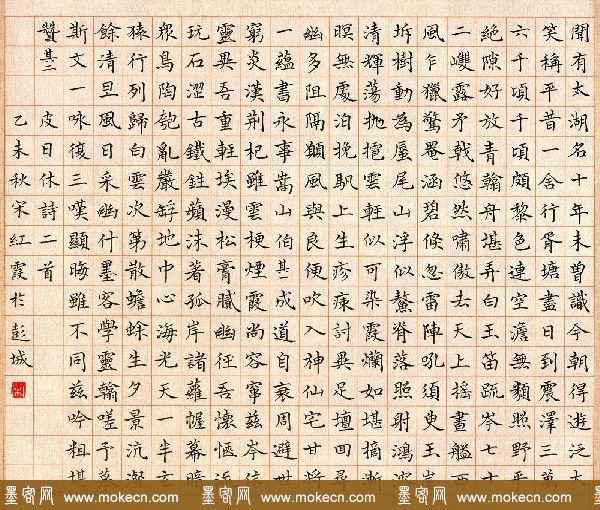 聞有太湖名十年未曾識今朝得遊泛大
笑稱平昔一舍行胥塘盡日到震澤三萬
六千頃千頃頗黎色連空澹無纇照野平
絕隙好放青翰舟堪弄白玉笛疏岑七十
二雙露矛戟悠然嘯傲去天上搖畫艗
風乍獵驚罨涵碧倏忽雷陣吼須臾玉崖
坼樹動為蜃尾山浮似鰲脊落照射鴻
清輝蕩拋雲輕似可染霞爛如堪摘漸
暝無處泊挽肌上生疹痳討異足壇回尋
幽多阻隔願風與良便吹入神仙宅甘將
一蘊書永事嵩山伯其一成道自衰周避世
窮炎漢荊杞雖雲梗煙霞尚容窜茲岑信
靈異吾重軒埃漫松膏膩幽徑吾懷愜近
玩石澀古鐵鉎蘋沫著孤岸諸蘿幄幕暗
眾鳥陶匏亂巖罅地中心海光天一半玄
猿行列歸白雲次第散蟾蜍生夕景沆瀣
餘清旦風日采幽什墨客學靈翰嗟予慕
斯文一詠復三嘆顯晦雖不同茲吟粗堪
贊其二
皮日休詩二首
乙未秋宋紅霞於彭城
墨客网 www.mokecn.com 墨客网 www.mokecn.com 墨客网 www.mokecn.com